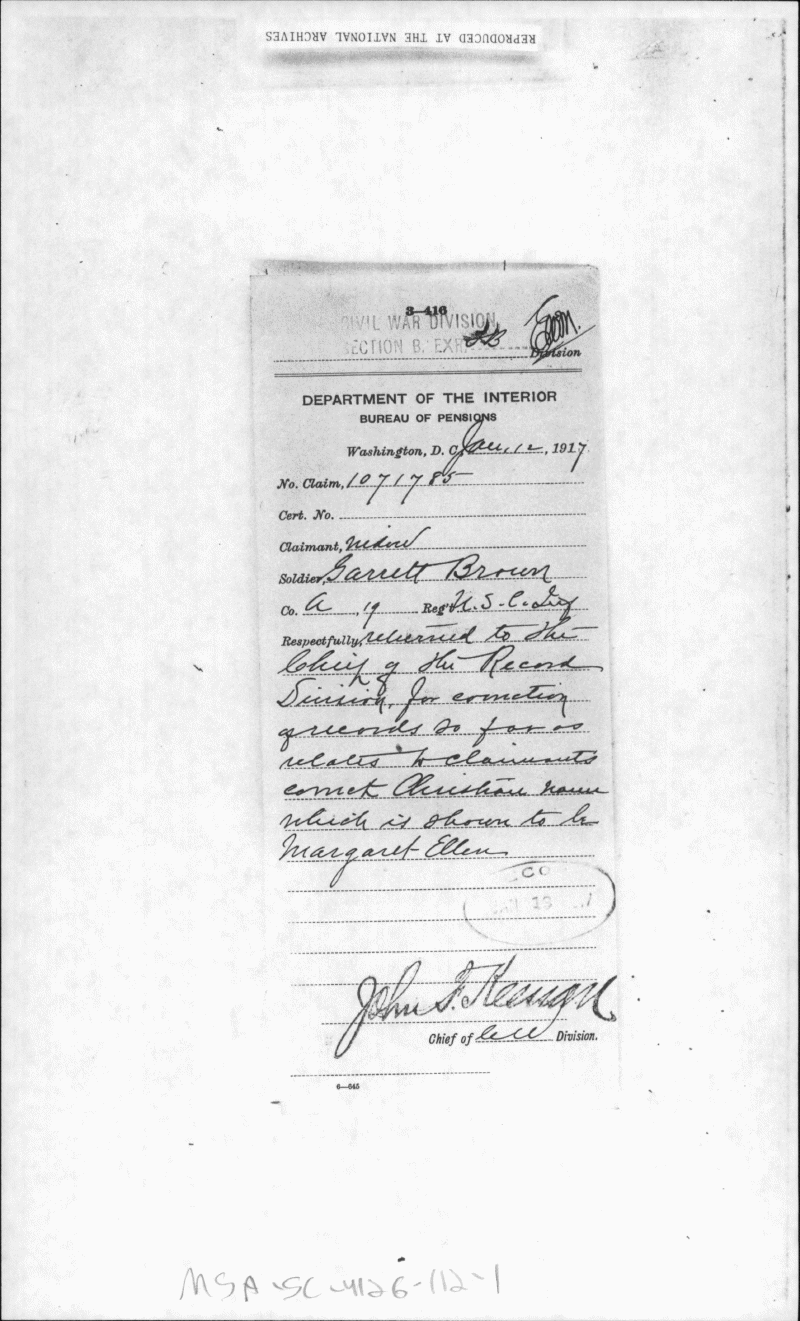 REPRODUCED AT THE NATIONAL ARCHIVES
3—416
CIVIL WAR DIVISION
SECTION B. EXR.
Division
DEPARTMENT OF THE INTERIOR
BUREAU OF PENSIONS
Washington, D. C. Jan. 12, 1917
No. Claim, 1071785
Cert. No.
Claimant, Widow
Soldier, Garrett Brown
Co. A, 19 Reg't U.S.C. Inf
Respectfully, returned to the
Chief of the Record
Division, for correction
of records so far as
relates to claimants
correct Christian name
which is shown to be
Margaret Ellen
John F. Keenan
Chief of CW Division.
6—645
MSA-SC-4126-112-1